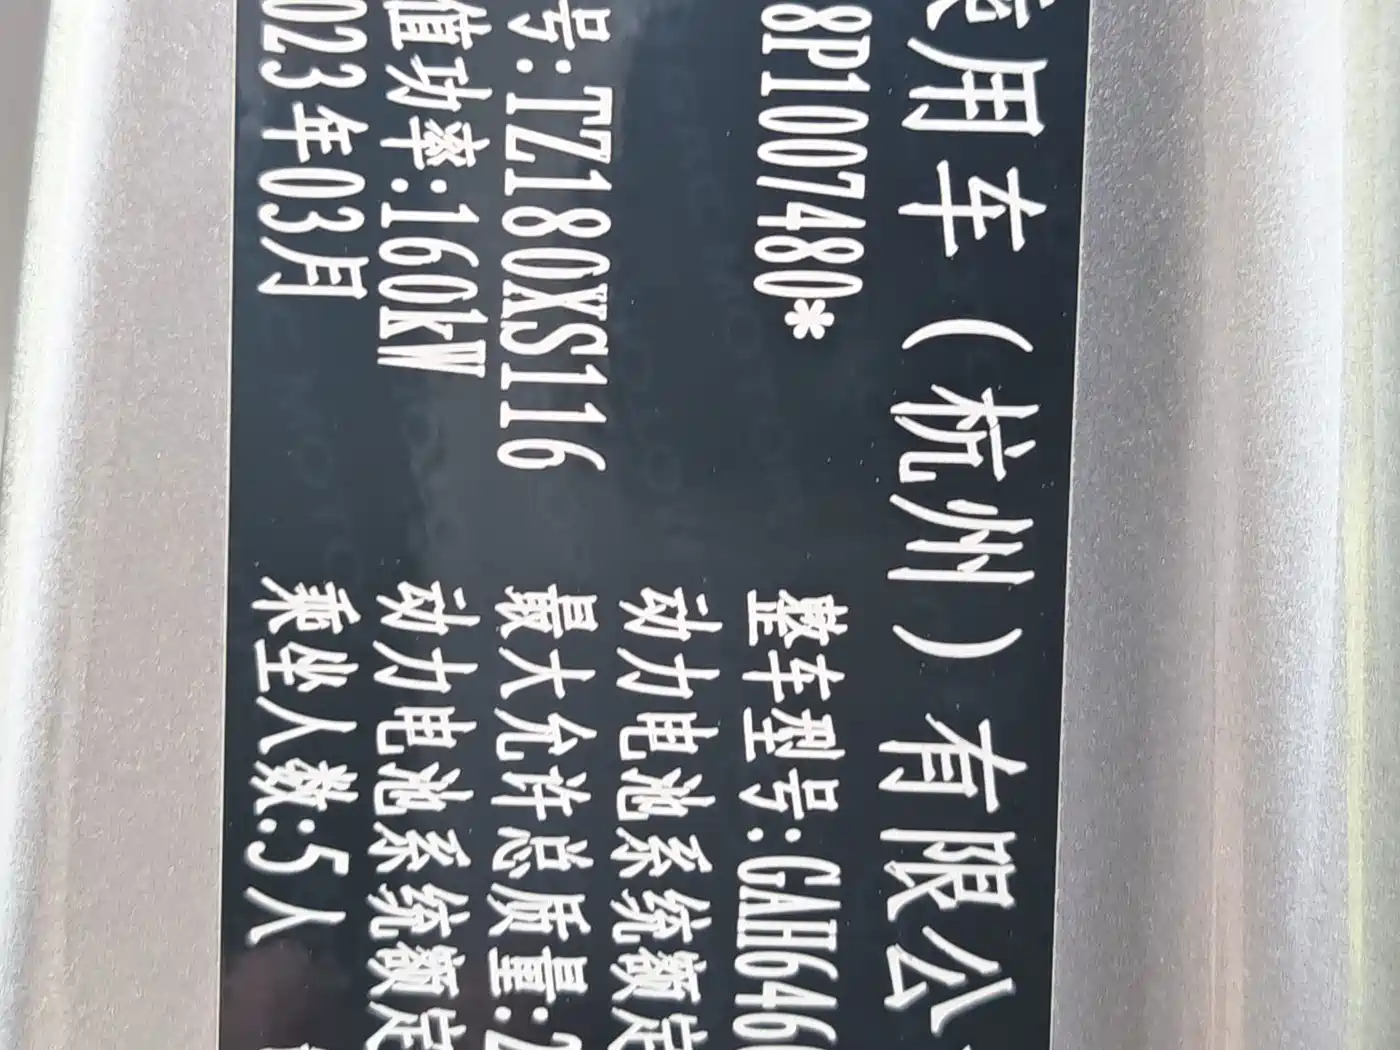 乘用车（杭州）有限公
8P1007480*
整车型号:GAH646
动力电池系统额定
号:TZ180XS116
最大允许总质量:2
值功率:160kW
动力电池系统额定
023年03月
乘坐人数:5人